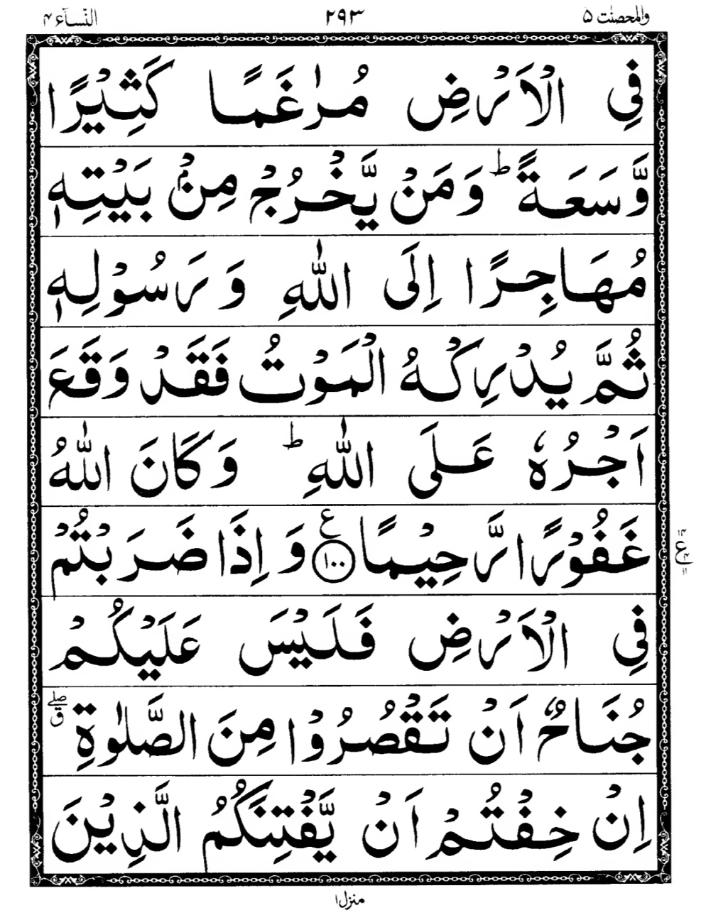 والمحصنٰت ۵ ۲۹۳ النّسآء ۴
فِي الْاَرْضِ مُرٰغَمًا كَثِيْرًا
وَّسَعَةً ؕ وَمَنْ يَّخْرُجْ مِنْۢ بَيْتِهٖ
مُهَاجِرًا اِلَى اللّٰهِ وَ رَسُوْلِهٖ
ثُمَّ يُدْرِكْهُ الْمَوْتُ فَقَدْ وَقَعَ
اَجْرُهٗ عَلَى اللّٰهِ ؕ وَكَانَ اللّٰهُ
غَفُوْرًا رَّحِيْمًا ۧ ﴿۱۰۰﴾ وَ اِذَا ضَرَبْتُمْ
فِي الْاَرْضِ فَلَيْسَ عَلَيْكُمْ
جُنَاحٌ اَنْ تَقْصُرُوْا مِنَ الصَّلٰوةِ ۖق
اِنْ خِفْتُمْ اَنْ يَّفْتِنَكُمُ الَّذِيْنَ
منزل ۱